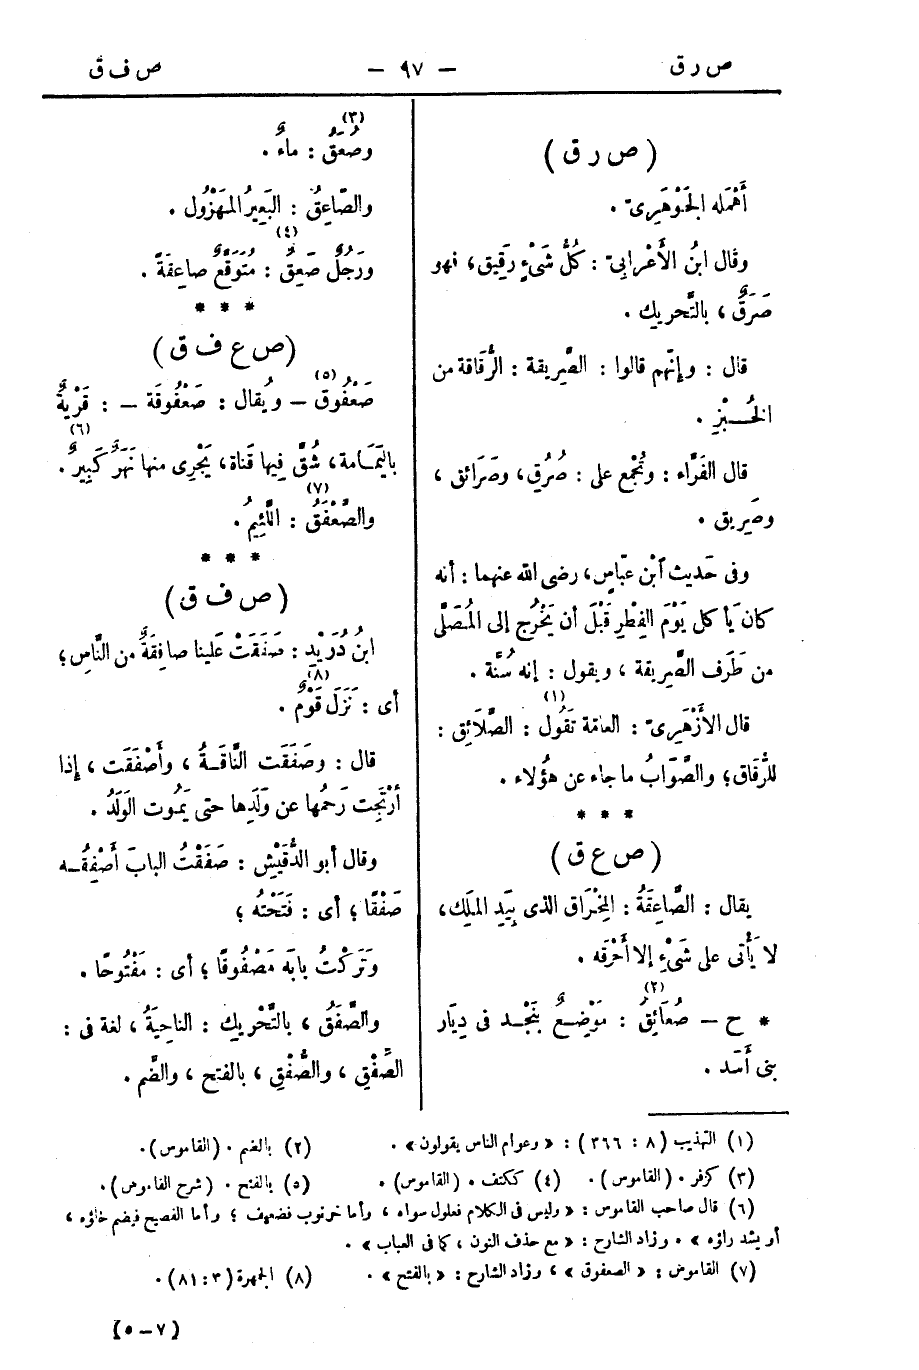 ص ر ق — ٩٧ — ص ف ق
( ص ر ق )
أَهْمَله الجَوْهَرِىّ .
وقال ابنُ الأَعْرابىّ : كُلُّ شَىْءٍ رَقِيق ، فهو
صَرَقٌ ، بالتَّحريك .
قال : وإنّهم قالوا : الصَّرِيقة : الرُّقَاقة من
الخُــبْزِ .
قال الفَرَّاء : وتُجْمع على : صُرُق ، وصَرَائق ،
وصَرِيق .
وفى حَديث ٱبْن عبّاسٍ ، رضى الله عنهما : أنه
كان يَأكل يَوْمَ الفِطْرِ قَبْلَ أن يَخْرُج إلى المُصَلَّى
من طَرَف الصَّرِيقة ، ويقول : إنه سُنَّة .
قال الأَزْهَرِىّ : العامّة تَقُول (١) : الصَّلَائِق :
للرُّقَاق ؛ والصَّوَابُ ما جاء عن هؤلاء .
* * *
( ص ع ق )
يقال : الصَّاعِقَةُ : المِخْرَاق الذى بِيَدِ المَلِك ،
لا يَأْتى على شَىْءٍ إلا أَحْرَقه .
* ح — صُعَائِقُ (٢) : مَوْضِعٌ بنَجْد فى دِيَار
بنى أَسَد .
وصُعَقٌ (٣) : ماءٌ .
والصَّاعِقُ : البَعِيرُ المَهْزُول .
ورَجُلٌ صَعِقٌ (٤) : مُتَوَقِّعٌ صاعِقَةً .
* * *
( ص ع ف ق )
صَعْفُوق (٥) — ويُقال : صَعْفُوقَة — : قَرْيةٌ
باليَمَامة ، شُقَّ فِيها قَناة ، يَجْرِى منها نَهَرٌ كَبِيرٌ (٦) .
والصَّعْفَقُ (٧) : اللَّئِيمُ .
* * *
( ص ف ق )
ابنُ دُرَيْدٍ : صَفَقَتْ عَلَينا صافِقَةٌ من النَّاسِ ؛
أى : نَزَلَ قَوْمٌ (٨) .
قال : وصَفَقَت النَّاقَـةُ ، وأَصْفَقَت ، إذا
أرْتَجت رَحمُها عن وَلَدِها حتى يَمُوت الوَلَدُ .
وقال أبو الدُّقَيْشِ : صَفَقْتُ البابَ أَصْفِقُـه
صَفْقًا ؛ أى : فَتَحْتُه ؛
وتَرَكْتُ بابَه مَصْفُوقًا ؛ أى : مَفْتُوحًا .
والصَّفَقُ ، بالتَّحْرِيك : الناحِيَةُ ، لغة فى :
الصَّفْقِ ، والصُّفْقِ ، بالفتح ، والضّم .
(١) التهذيب (٨ : ٣٦٦) : « وعوام الناس يقولون » . (٢) بالضم . (القاموس) .
(٣) كزفر . (القاموس) . (٤) ككتف . (القاموس) . (٥) بالفتح . (شرح القاموس) .
(٦) قال صاحب القاموس : « وليس فى الكلام فعلول سواه ، وأما خرنوب فضعيف ؛ وأما الفصيح فيضم خاؤه ،
أو يشد راؤه » . وزاد الشارح : « مع حذف النون ، كما فى العباب » .
(٧) القاموس : « الصعفوق » ، وزاد الشارح : « بالفتح » . (٨) الجمهرة (٣ : ٨١) .
[٧ – ٥]